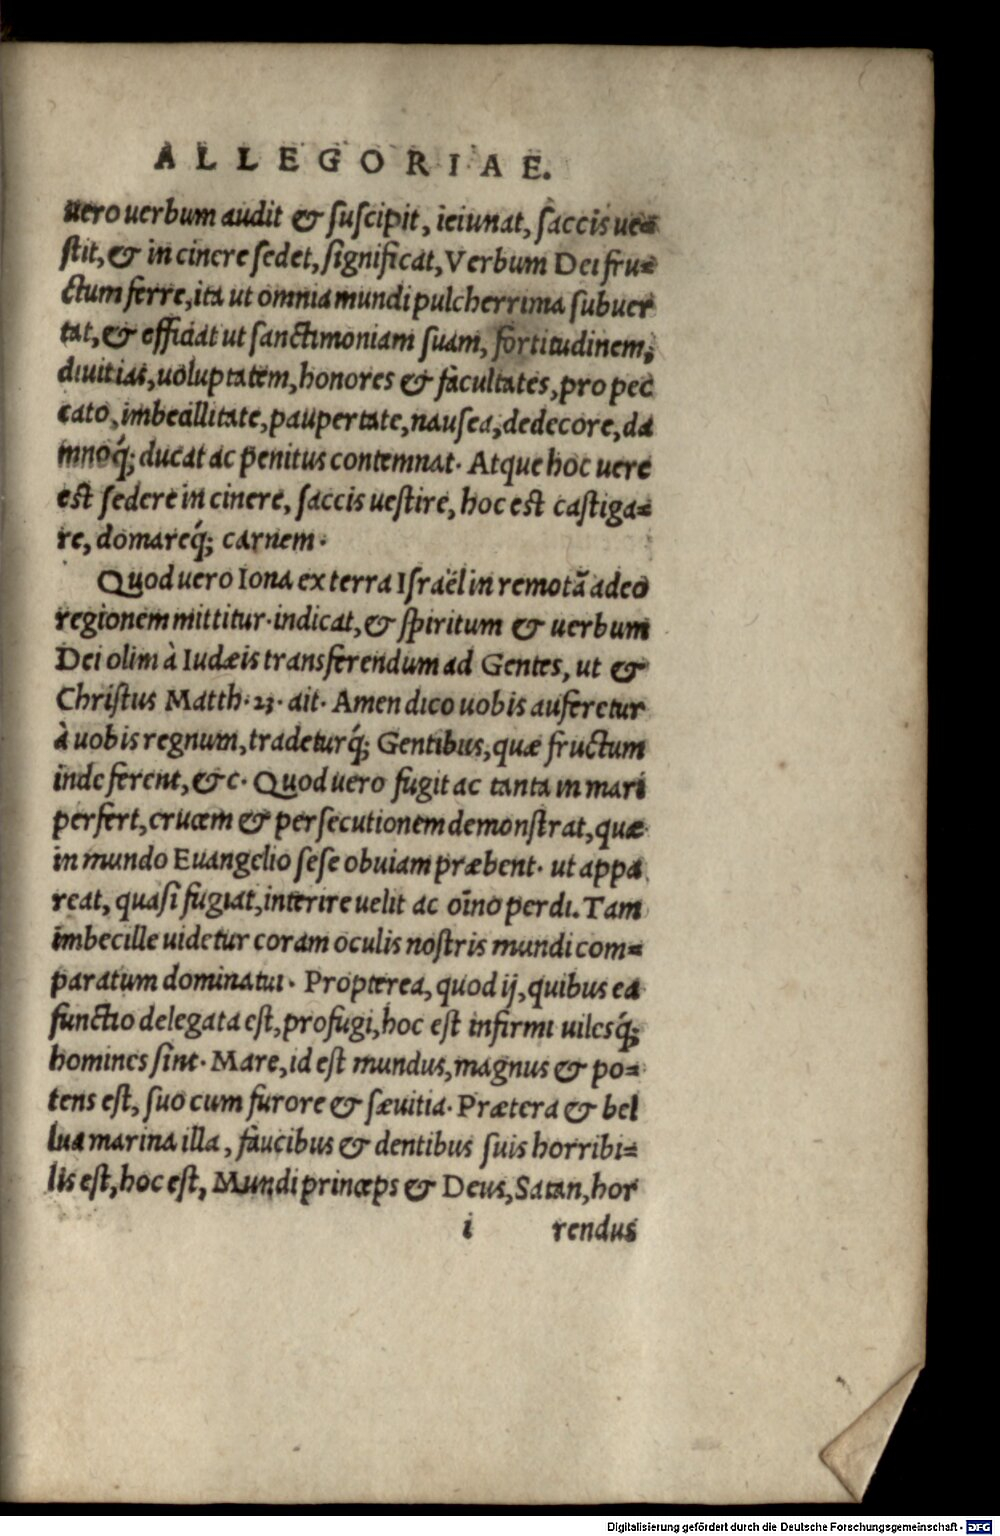 ALLEGORIAE.
uero uerbum audit & suscipit, ieiunat, saccis ue=
stit, & in cinere sedet, significat, Verbum Dei fru=
ctum ferre, ita ut omnia mundi pulcherrima subuer
tat, & efficiat ut sanctimoniam suam, fortitudinem,
diuitias, uoluptatem, honores & facultates, pro pec
cato, imbecillitate, paupertate, nausea, dedecore, da
mnoq́; ducat ac penitus contemnat. Atque hoc uere
est sedere in cinere, saccis uestire, hoc est castiga=
re, domareq́; carnem.
Quod uero Iona ex terra Israël in remotā adeo
regionem mittitur. indicat, & spiritum & uerbum
Dei olim à Iudæis transferendum ad Gentes, ut &
Christus Matth. 23. ait. Amen dico uobis auferetur
à uobis regnum, tradeturq́; Gentibus, quæ fructum
inde ferent, &c. Quod uero fugit ac tanta in mari
perfert, crucem & persecutionem demonstrat, quæ
in mundo Euangelio sese obuiam præbent. ut appa
reat, quasi fugiat, interire uelit ac oīno perdi. Tam
imbecille uidetur coram oculis nostris mundi com=
paratum dominatui. Propterea, quod ij, quibus ea
functio delegata est, profugi, hoc est infirmi uilesq́;
homines sint. Mare, id est mundus, magnus & po=
tens est, suo cum furore & sæuitia. Prætera & bel
lua marina illa, faucibus & dentibus suis horribi=
lis est, hoc est, Mundi princeps & Deus, Satan, hor
i rendus
Digitalisierung gefördert durch die Deutsche Forschungsgemeinschaft - DFG